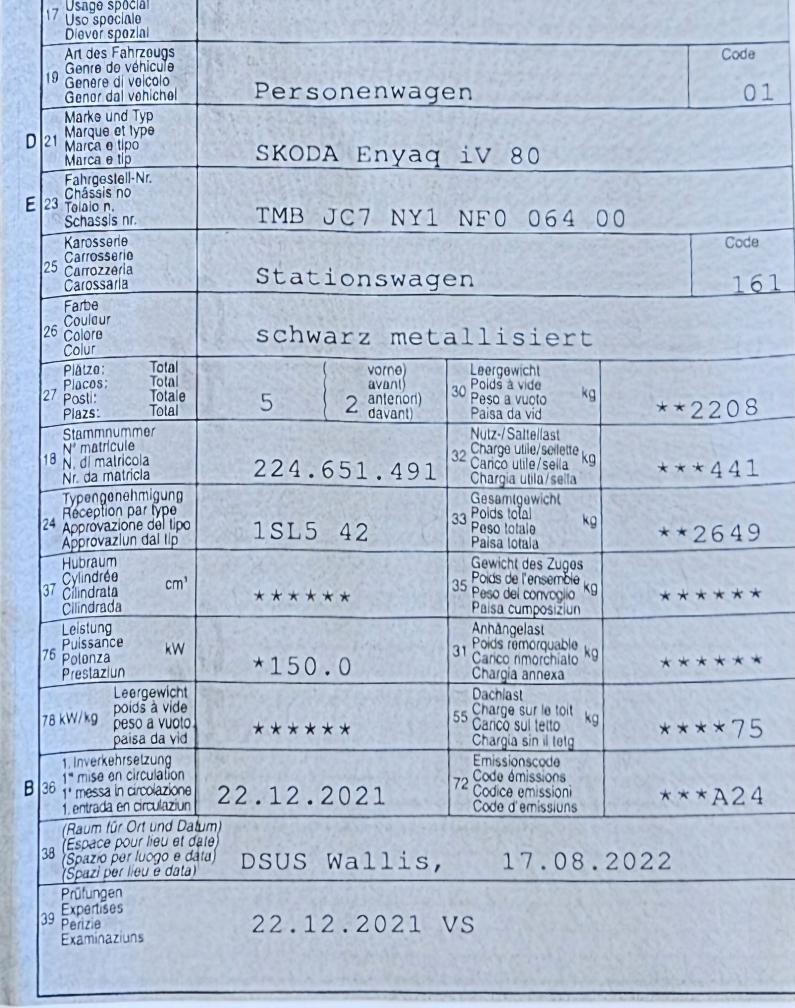 17 Usage spécial
Uso speciale
Diever spezial
19 Art des Fahrzeugs
Genre de véhicule
Genere di veicolo
Gener dal vehichel
Personenwagen
Code
01
D 21 Marke und Typ
Marque et type
Marca e tipo
Marca e tip
SKODA Enyaq iV 80
E 23 Fahrgestell-Nr.
Châssis no
Telaio n.
Schassis nr.
TMB JC7 NY1 NF0 064 00
25 Karosserie
Carrosserie
Carrozzeria
Carossaria
Stationswagen
Code
161
26 Farbe
Couleur
Colore
Colur
schwarz metallisiert
27 Plätze: Total
Places: Total
Posti: Totale
Plazs: Total
5
( 2 vorne)
avant)
anteriori)
davant)
30 Leergewicht
Poids à vide
Peso a vuoto
Paisa da vid
kg
**2208
18 Stammnummer
N° matricule
N. di matricola
Nr. da matricla
224.651.491
32 Nutz-/Sattellast
Charge utile/sellette
Carico utile/sella
Chargia utila/sella
kg
***441
24 Typengenehmigung
Réception par type
Approvazione del tipo
Approvaziun dal tip
1SL5 42
33 Gesamtgewicht
Poids total
Peso totale
Paisa totala
kg
**2649
37 Hubraum
Cylindrée
Cilindrata
Cilindrada
cm³
******
35 Gewicht des Zuges
Poids de l'ensemble
Peso del convoglio
Paisa cumposiziun
kg
******
76 Leistung
Puissance
Potenza
Prestaziun
kW
*150.0
31 Anhängelast
Poids remorquable
Carico rimorchiato
Chargia annexa
kg
******
78 kW/kg
Leergewicht
poids à vide
peso a vuoto
paisa da vid
******
55 Dachlast
Charge sur le toit
Carico sul tetto
Chargia sin il tetg
kg
****75
B 36 1. Inverkehrsetzung
1re mise en circulation
1a messa in circolazione
1. entrada en circulaziun
22.12.2021
72 Emissionscode
Code émissions
Codice emissioni
Code d'emissiuns
***A24
38 (Raum für Ort und Datum)
(Espace pour lieu et date)
(Spazio per luogo e data)
(Spazi per lieu e data)
DSUS Wallis, 17.08.2022
39 Prüfungen
Expertises
Perizie
Examinaziuns
22.12.2021 VS